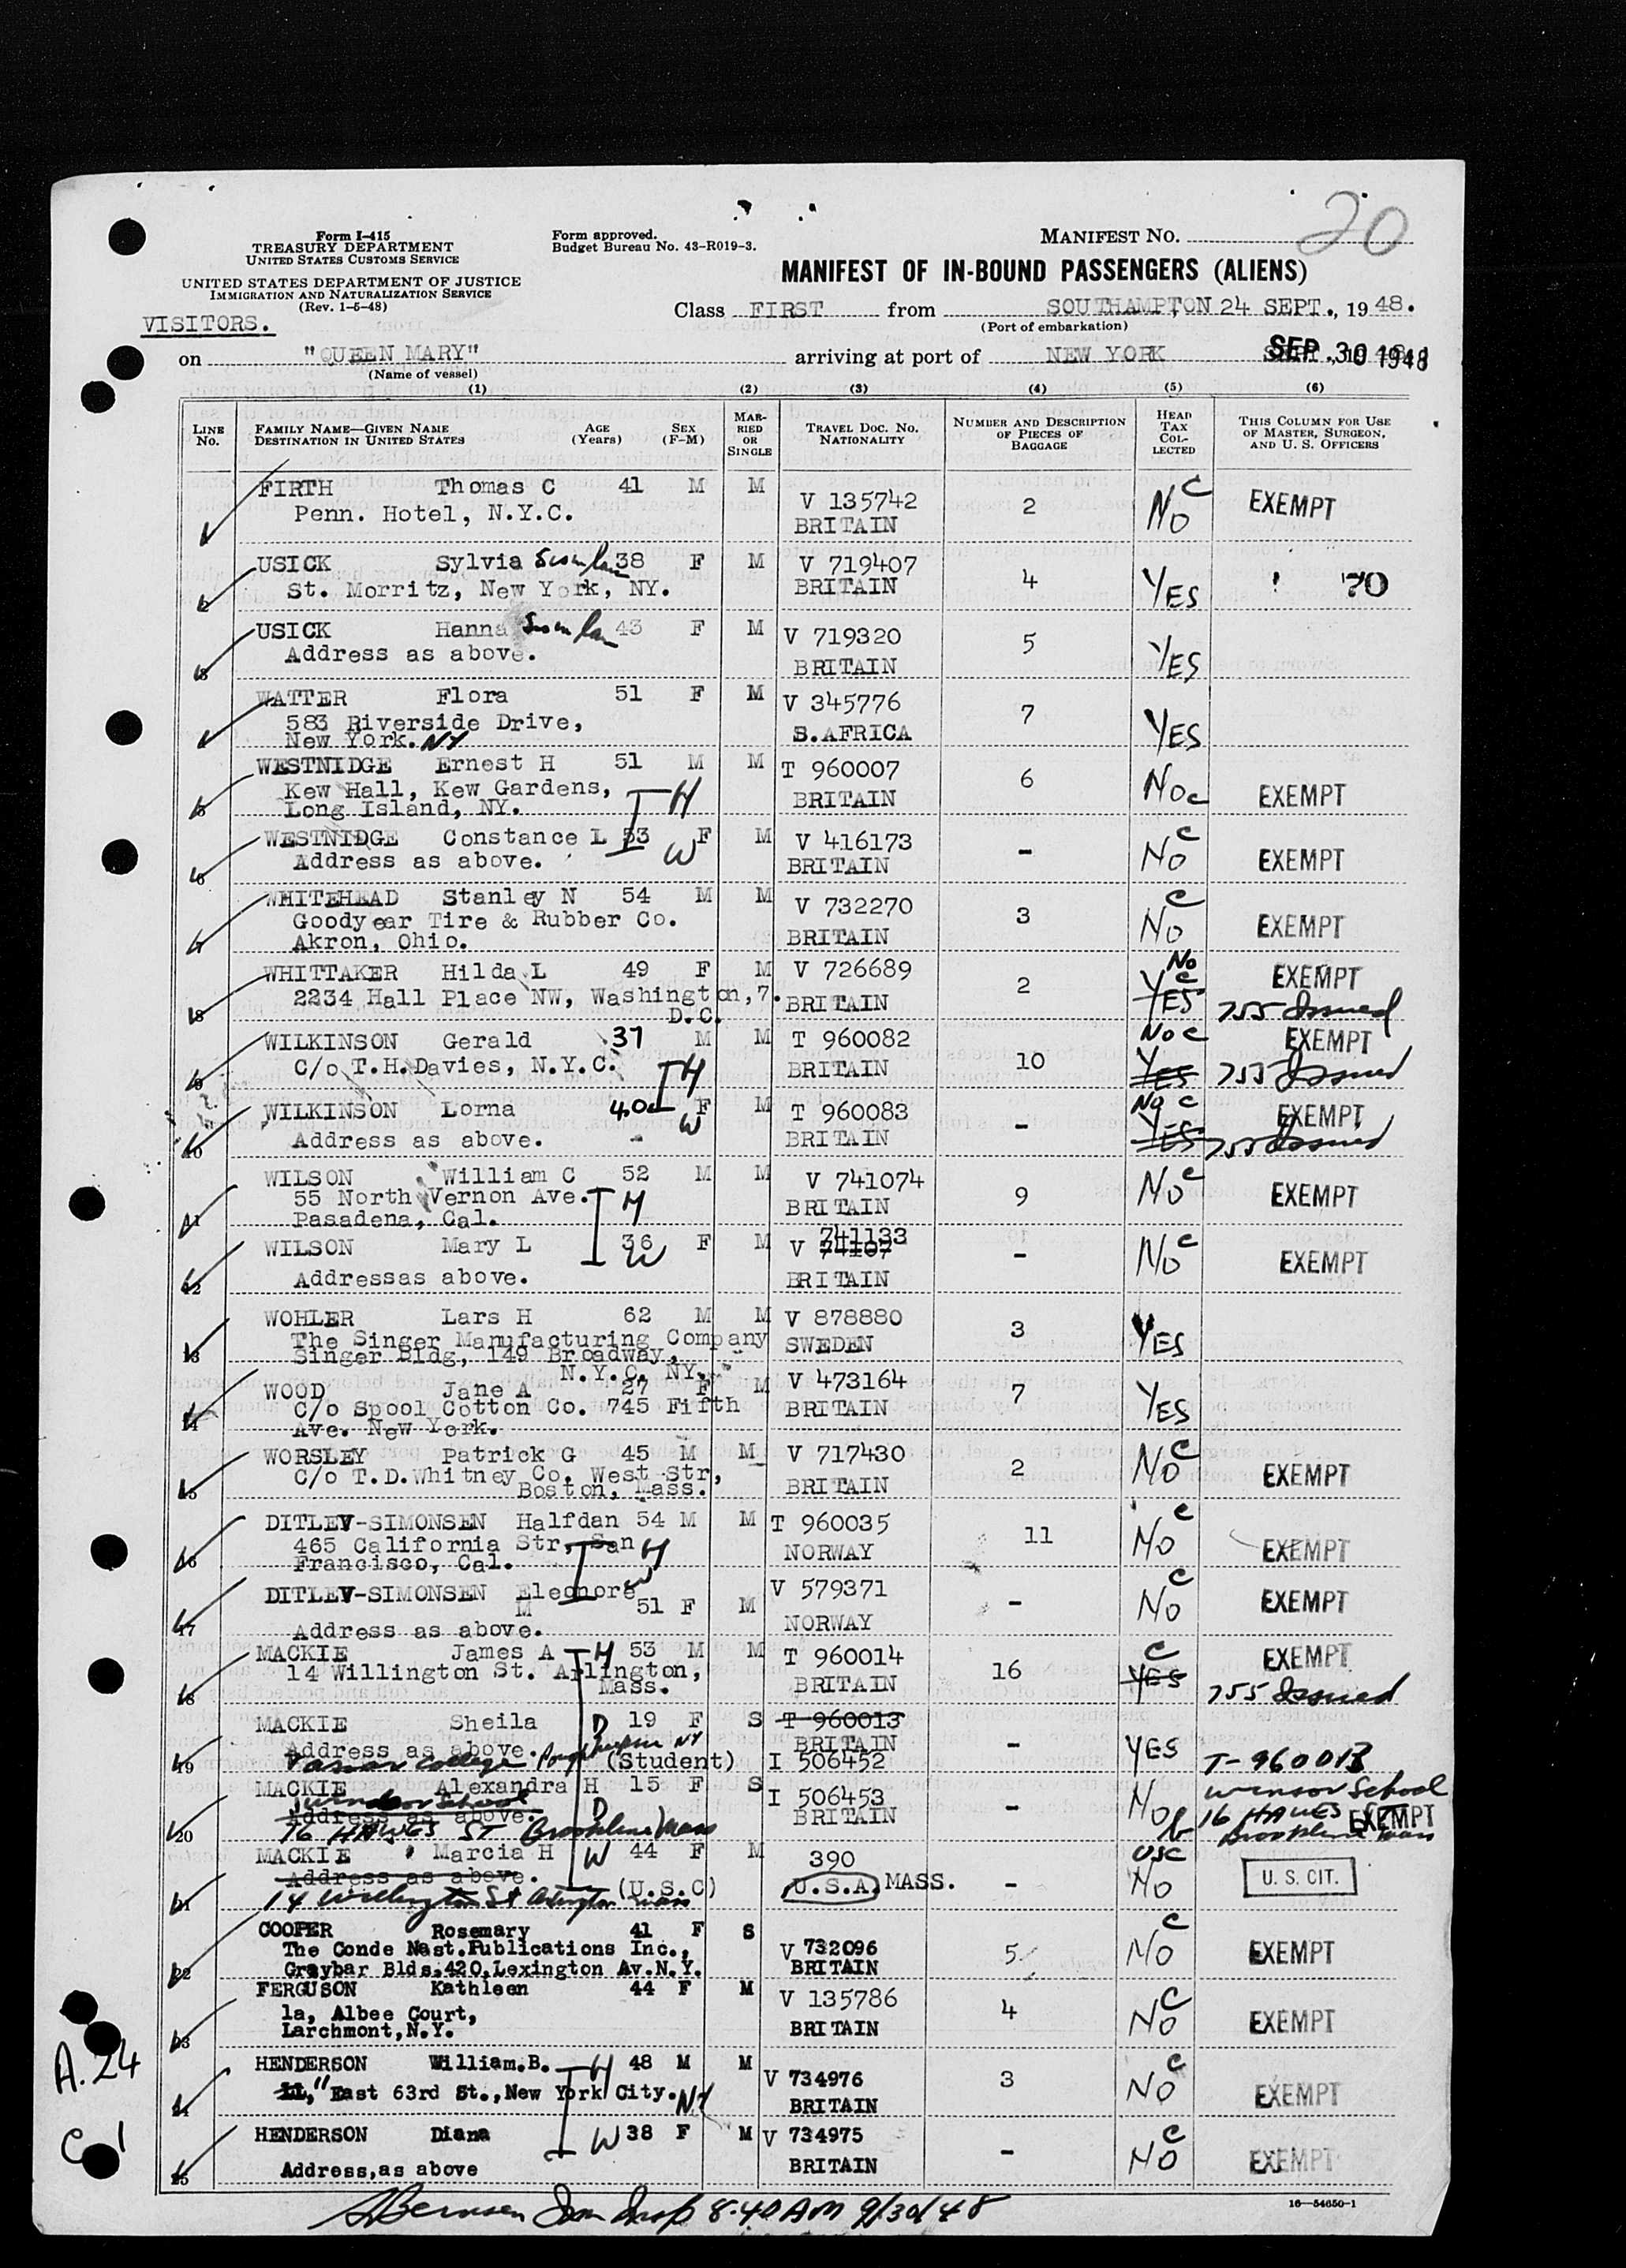 20
Form I-415
TREASURY DEPARTMENT
UNITED STATES CUSTOMS SERVICE
UNITED STATES DEPARTMENT OF JUSTICE
IMMIGRATION AND NATURALIZATION SERVICE
(Rev. 1-5-48)
Form approved.
Budget Bureau No. 43-R019-3.
MANIFEST NO.
MANIFEST OF IN-BOUND PASSENGERS (ALIENS)
VISITORS.
Class FIRST from SOUTHAMPTON 24 SEPT., 1948.
(Port of embarkation)
on "QUEEN MARY" arriving at port of NEW YORK SEP 30 1948
(Name of vessel)
(1) (2) (3) (4) (5) (6)
LINE No.
FAMILY NAME—GIVEN NAME
DESTINATION IN UNITED STATES
AGE (Years)
SEX (F-M)
MARRIED OR SINGLE
TRAVEL DOC. NO. NATIONALITY
NUMBER AND DESCRIPTION OF PIECES OF BAGGAGE
HEAD TAX COLLECTED
THIS COLUMN FOR USE OF MASTER, SURGEON, AND U. S. OFFICERS
FIRTH Thomas C 41 M M V 135742 2 No C EXEMPT
Penn. Hotel, N.Y.C. BRITAIN
USICK Sylvia 38 F M V 719407 4 YES
2 St. Morritz, New York, NY. BRITAIN
USICK Hanna 43 F M V 719320 5 YES
3 Address as above. BRITAIN
WATTER Flora 51 F M V 345776 7 YES
583 Riverside Drive, S.AFRICA
New York. NY
WESTNIDGE Ernest H 51 M M T 960007 6 No c EXEMPT
Kew Hall, Kew Gardens, H BRITAIN
5 Long Island, NY.
WESTNIDGE Constance L 53 F M V 416173 - No C EXEMPT
6 Address as above. W BRITAIN
WHITEHEAD Stanley N 54 M M V 732270 3 No C EXEMPT
Goodyear Tire & Rubber Co. BRITAIN
7 Akron, Ohio.
WHITTAKER Hilda L 49 F M V 726689 2 No C YES EXEMPT
8 2234 Hall Place NW, Washington,7. D.C. BRITAIN 755 Issued
WILKINSON Gerald 37 M M T 960082 10 No C YES EXEMPT
9 C/o T.H.Davies, N.Y.C. H BRITAIN 755 Issued
WILKINSON Lorna 40 F M T 960083 - No C YES EXEMPT
10 Address as above. W BRITAIN 755 Issued
WILSON William C 52 M M V 741074 9 No C EXEMPT
55 North Vernon Ave. H BRITAIN
11 Pasadena, Cal.
WILSON Mary L 36 F M V 741133 74107 - No C EXEMPT
12 Addressas above. W BRITAIN
WOHLER Lars H 62 M M V 878880 3 YES
The Singer Manufacturing Company SWEDEN
13 Singer Bldg, 149 Broadway,
N.Y.C. NY.
WOOD Jane A 27 F M V 473164 7 YES
C/o Spool Cotton Co. 745 Fifth BRITAIN
14 Ave. New York.
WORSLEY Patrick G 45 M M V 717430 2 No C EXEMPT
C/o T.D.Whitney Co, West Str, BRITAIN
15 Boston, Mass.
DITLEV-SIMONSEN Halfdan 54 M M T 960035 11 No C EXEMPT
465 California Str, San H NORWAY
16 Francisco, Cal.
DITLEV-SIMONSEN Eleonore M W 51 F M V 579371 - No C EXEMPT
17 Address as above. NORWAY
MACKIE James A H 53 M M T 960014 16 C YES EXEMPT
14 Willington St. Arlington, BRITAIN 755 Issued
18 Mass.
MACKIE Sheila D 19 F S T 960013 - YES
Address as above. BRITAIN
19 Vassar College Poughkeepsie NY (Student) I 506452 T-960013
MACKIE Alexandra H 15 F S I 506453 - No Winsor School
Address as above. D BRITAIN 16 HAWES ST EXEMPT
20 16 HAWES ST Brookline Mass Brookline Mass
MACKIE Marcia H W 44 F M 390 - USC No U. S. CIT.
Address as above. (U.S.C) U.S.A. MASS.
21 14 Willington St Arlington Mass
COOPER Rosemary 41 F S V 732096 5 No C EXEMPT
The Conde Nast.Publications Inc., BRITAIN
22 Graybar Blds.420,Lexington Av.N.Y.
FERGUSON Kathleen 44 F M V 135786 4 No C EXEMPT
1a, Albee Court, BRITAIN
23 Larchmont,N.Y.
HENDERSON William.B. H 48 M M V 734976 3 No C EXEMPT
East 63rd St.,New York City. NY BRITAIN
HENDERSON Diana W 38 F M V 734975 - No C EXEMPT
25 Address,as above BRITAIN
A.24
C 1
8.40 AM 9/30/48
16—54650-1